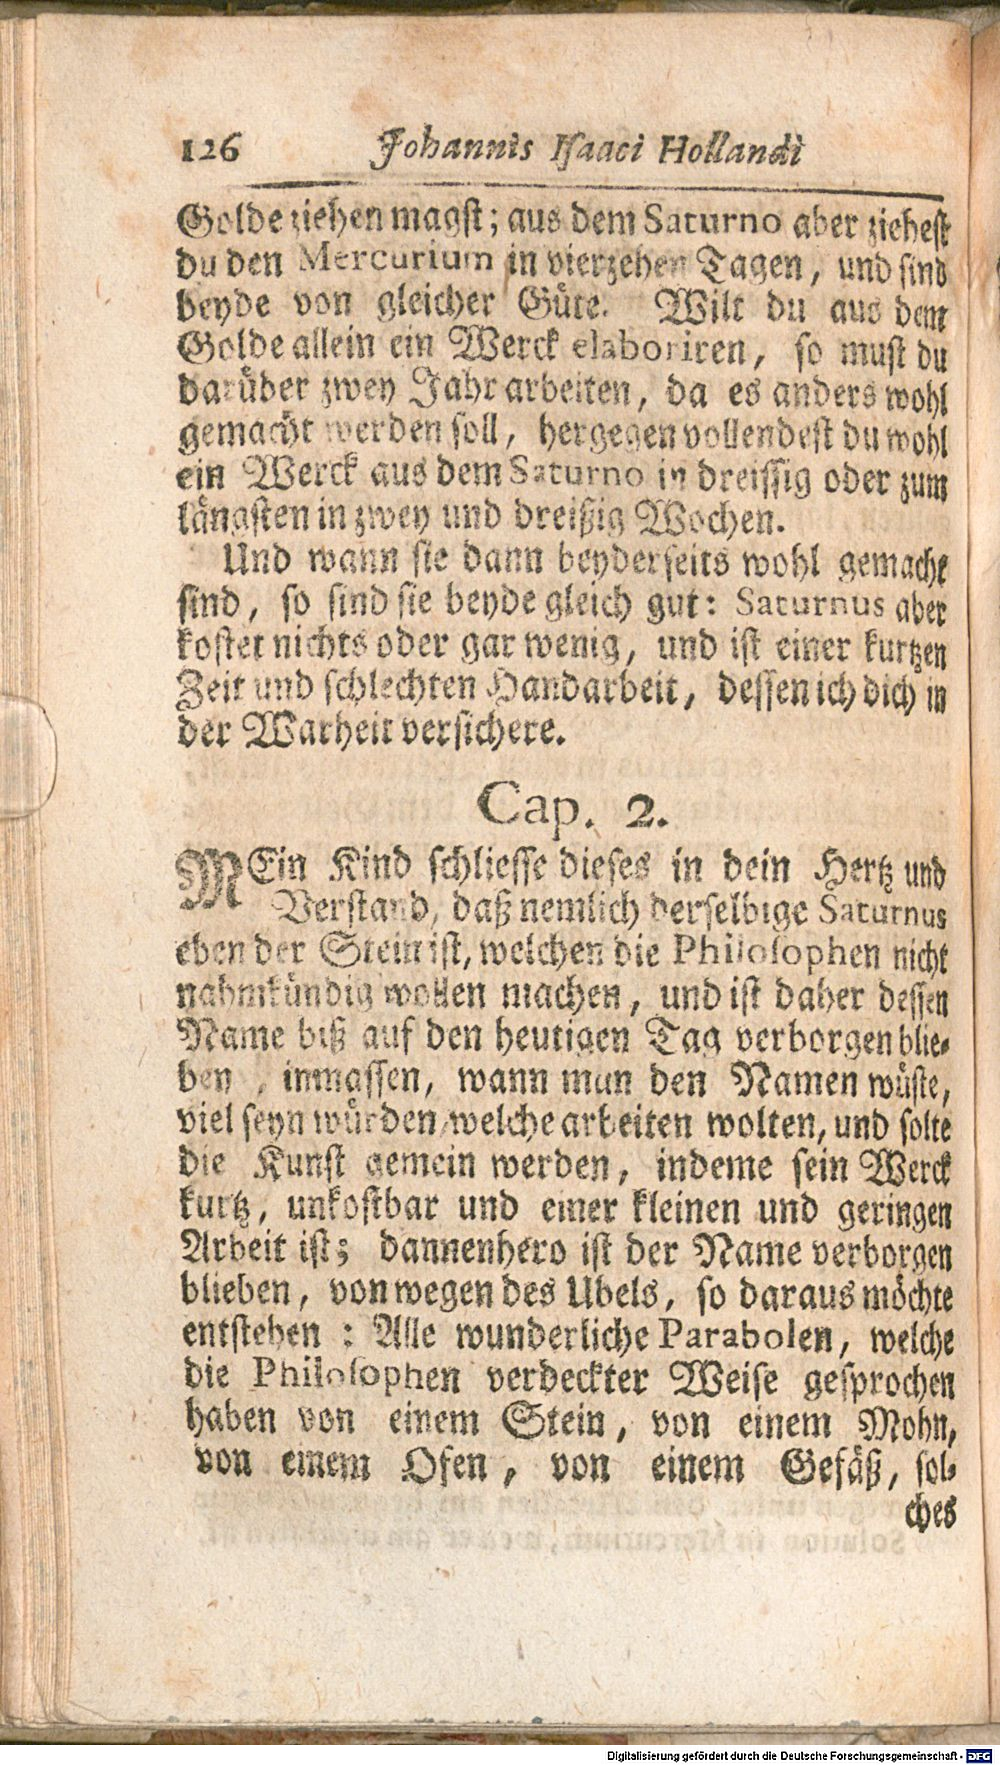 126 Johannis Isaaci Hollandi
Golde ziehen magst; aus dem Saturno aber ziehest
du den Mercurium in vierzehen Tagen, und sind
beyde von gleicher Güte. Wilt du aus dem
Golde allein ein Werck elaboriren, so must du
darüber zwey Jahr arbeiten, da es anders wohl
gemacht werden soll, hergegen vollendest du wohl
ein Werck aus dem Saturno in dreissig oder zum
längsten in zwey und dreißig Wochen.
Und wann sie dann beyderseits wohl gemacht
sind, so sind sie beyde gleich gut: Saturnus aber
kostet nichts oder gar wenig, und ist einer kurtzen
Zeit und schlechten Handarbeit, dessen ich dich in
der Warheit versichere.
Cap. 2.
MEin Kind schliesse dieses in dein Hertz und
Verstand, daß nemlich derselbige Saturnus
eben der Stein ist, welchen die Philosophen nicht
nahmkündig wollen machen, und ist daher dessen
Name biß auf den heutigen Tag verborgen blie-
ben, inmassen, wann man den Namen wüste,
viel seyn würden, welche arbeiten wolten, und solte
die Kunst gemein werden, indeme sein Werck
kurtz, unkostbar und einer kleinen und geringen
Arbeit ist; dannenhero ist der Name verborgen
blieben, von wegen des Ubels, so daraus möchte
entstehen: Alle wunderliche Parabolen, welche
die Philosophen verdeckter Weise gesprochen
haben von einem Stein, von einem Mohn,
von einem Ofen, von einem Gefäß, sol-
ches
Digitalisierung gefördert durch die Deutsche Forschungsgemeinschaft - DFG